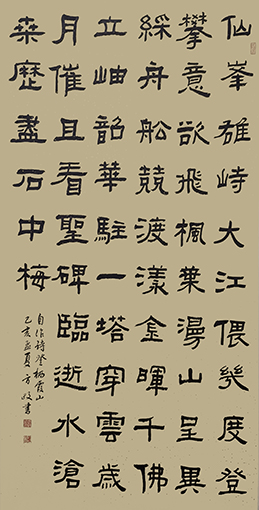 仙峯雄峙大江偎幾度登
攀意欲飛楓葉漫山呈異
綵舟舩競渡漾金暉千佛
立岫韶華駐一塔穿雲歲
月催且看聖碑臨逝水滄
桒歷盡石中梅
自作詩登栖霞山
己亥孟夏方書